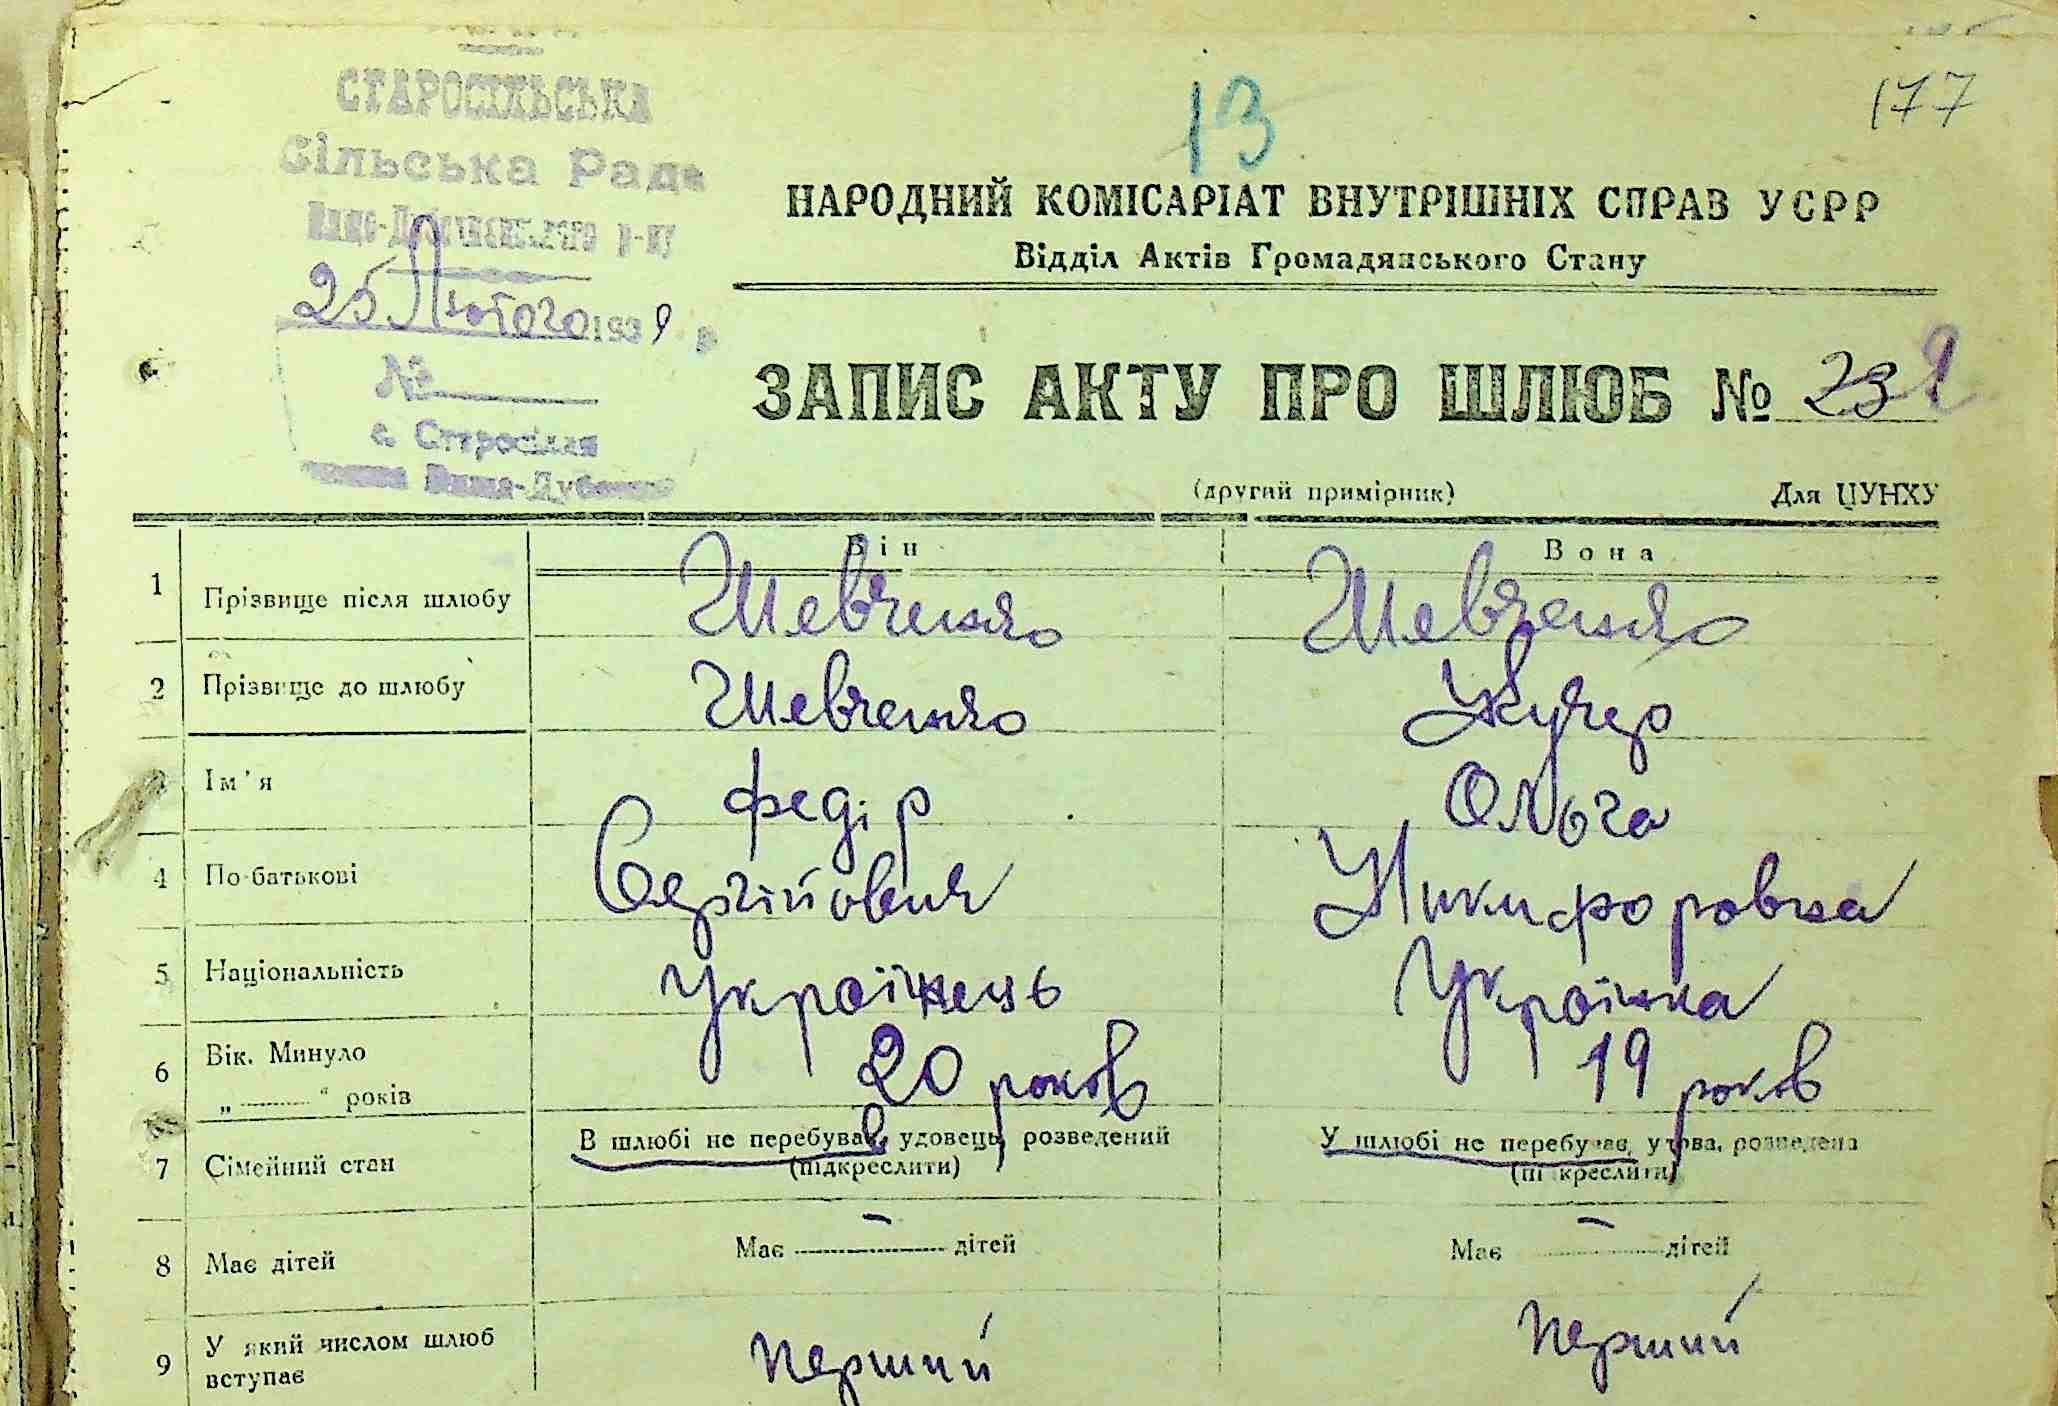 СТАРОСІЛЬСЬКА
Сільська Рада
р-ну
25 Лютого 1939 р
№
с. Старосілля
13
177
НАРОДНИЙ КОМІСАРІАТ ВНУТРІШНІХ СПРАВ УСРР
Відділ Актів Громадянського Стану
ЗАПИС АКТУ ПРО ШЛЮБ №
(другий примірник) Для ЦУНХУ
Він Вона
1 Прізвище після шлюбу Шевченко Шевченко
2 Прізвище до шлюбу Шевченко Кучер
Ім'я Федір Ольга
4 По-батькові Сергійович Никифоровна
5 Національність Українець Українка
6 Вік. Минуло
„ “ років 20 років 19 років
7 Сімейний стан В шлюбі не перебував, удовець, розведений У шлюбі не перебувае, удова, розведена
(підкреслити) (підкреслити)
8 Має дітей Має - дітей Має - дітей
9 У який числом шлюб
вступає перший перший